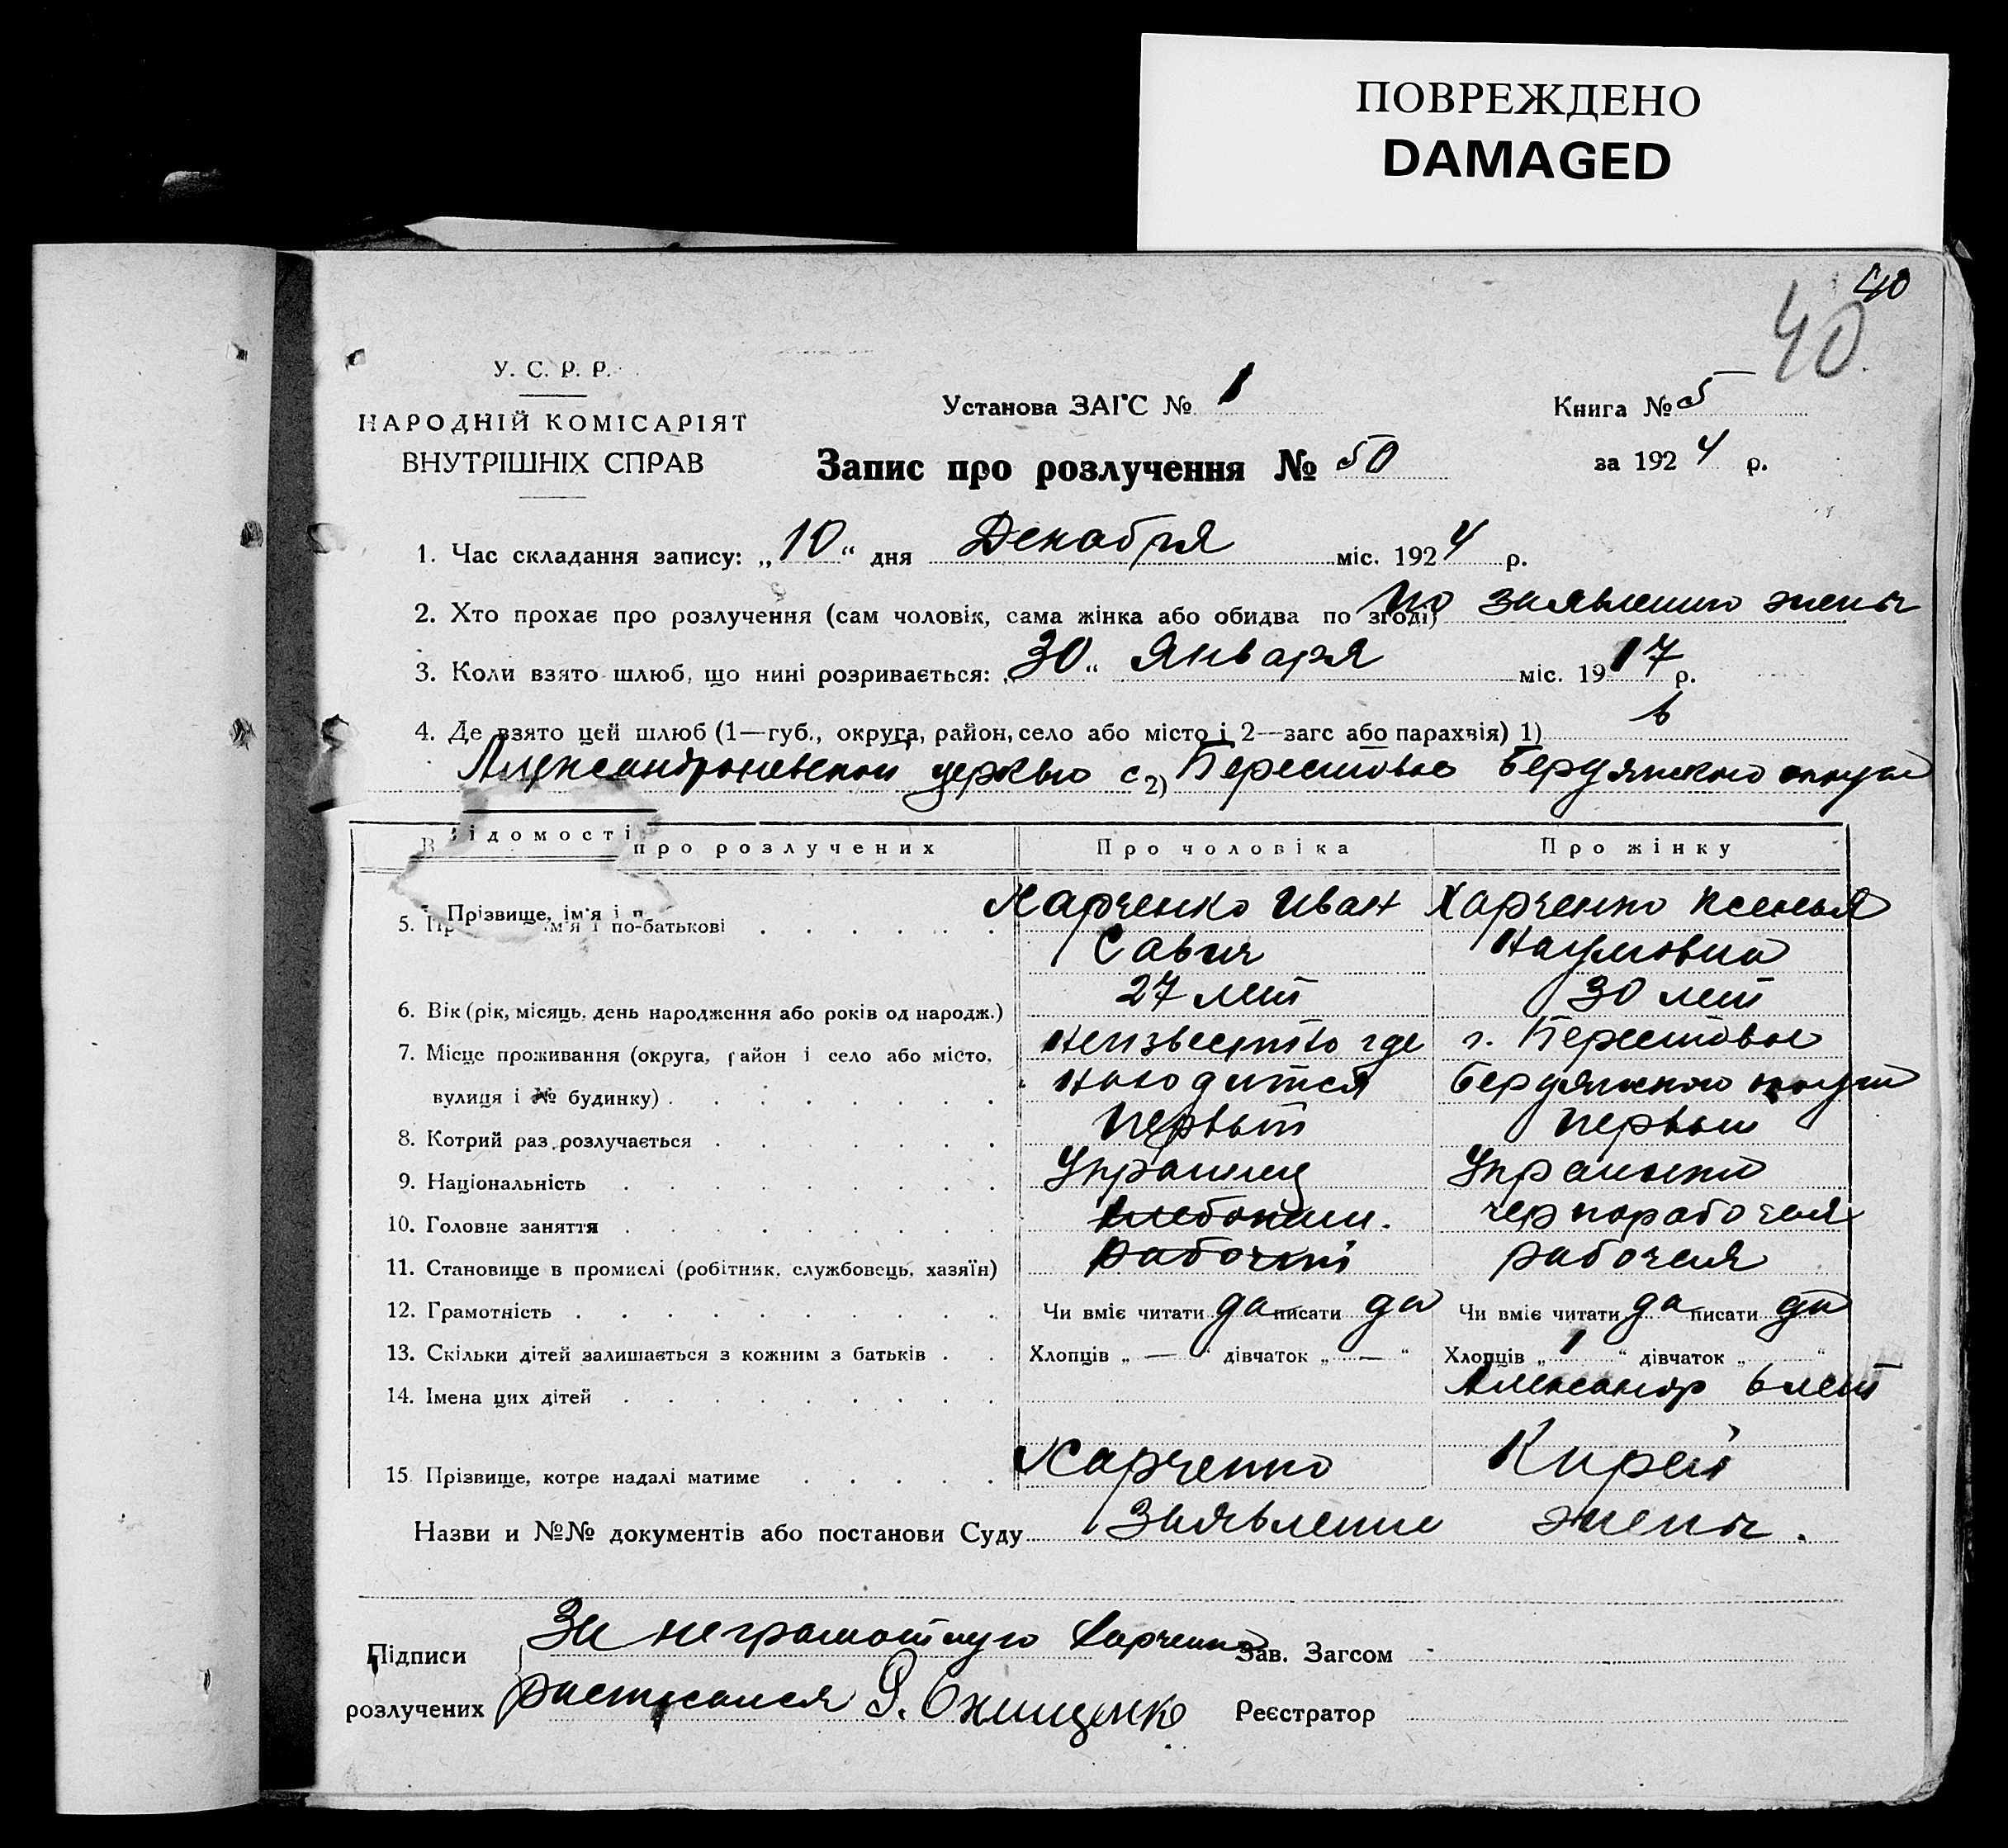 ПОВРЕЖДЕНО
DAMAGED
40
40
У. С. Р. Р.
НАРОДНІЙ КОМІСАРІЯТ
ВНУТРІШНІХ СПРАВ
Установа ЗАГС № 1
Книга № 5
Запис про розлучення № 50
за 1924 р.
1. Час складання запису: „10“ дня Декабря міс. 1924 р.
2. Хто прохає про розлучення (сам чоловік, сама жінка або обидва по згоді) по заявлению жены
3. Коли взято шлюб, що нині розривається: „30“ Января міс. 1917 р.
4. Де взято цей шлюб (1—губ., округа, район, село або місто і 2—загс або парахвія) 1) в
Александроневской церквью с 2) Берестовое Бердянского округа
Відомості про розлучених Про чоловіка Про жінку
Прізвище, ім'я і п
5. Пр ім'я і по-батькові Харченко Иван Харченко Ксенья
Савич Наумовна
6. Вік (рік, місяць, день народження або років од народж.) 27 лет 30 лет
7. Місце проживання (округа, район і село або місто, неизвестно где с. Берестовое
вулиця і № будинку) находится Бердянского округа
8. Котрий раз розлучається Первый Первый
9. Національність Украинец Украинка
10. Головне заняття Хлебопаш. чернорабочая
11. Становище в промислі (робітник, службовець, хазяїн) рабочий рабочая
12. Грамотність Чи вміє читати да писати да Чи вміє читати да писати да
13. Скільки дітей залишається з кожним з батьків Хлопців „ — “ дівчаток „ — “ Хлопців „ 1 “ дівчаток „ “
14. Імена цих дітей Александр 6 лет
15. Прізвище, котре надалі матиме Харченко Кирей
Назви и №№ документів або постанови Суду Заявление жены.
Підписи За неграмотную Харченко Зав. Загсом
розлучених расписался Онищенко Реєстратор